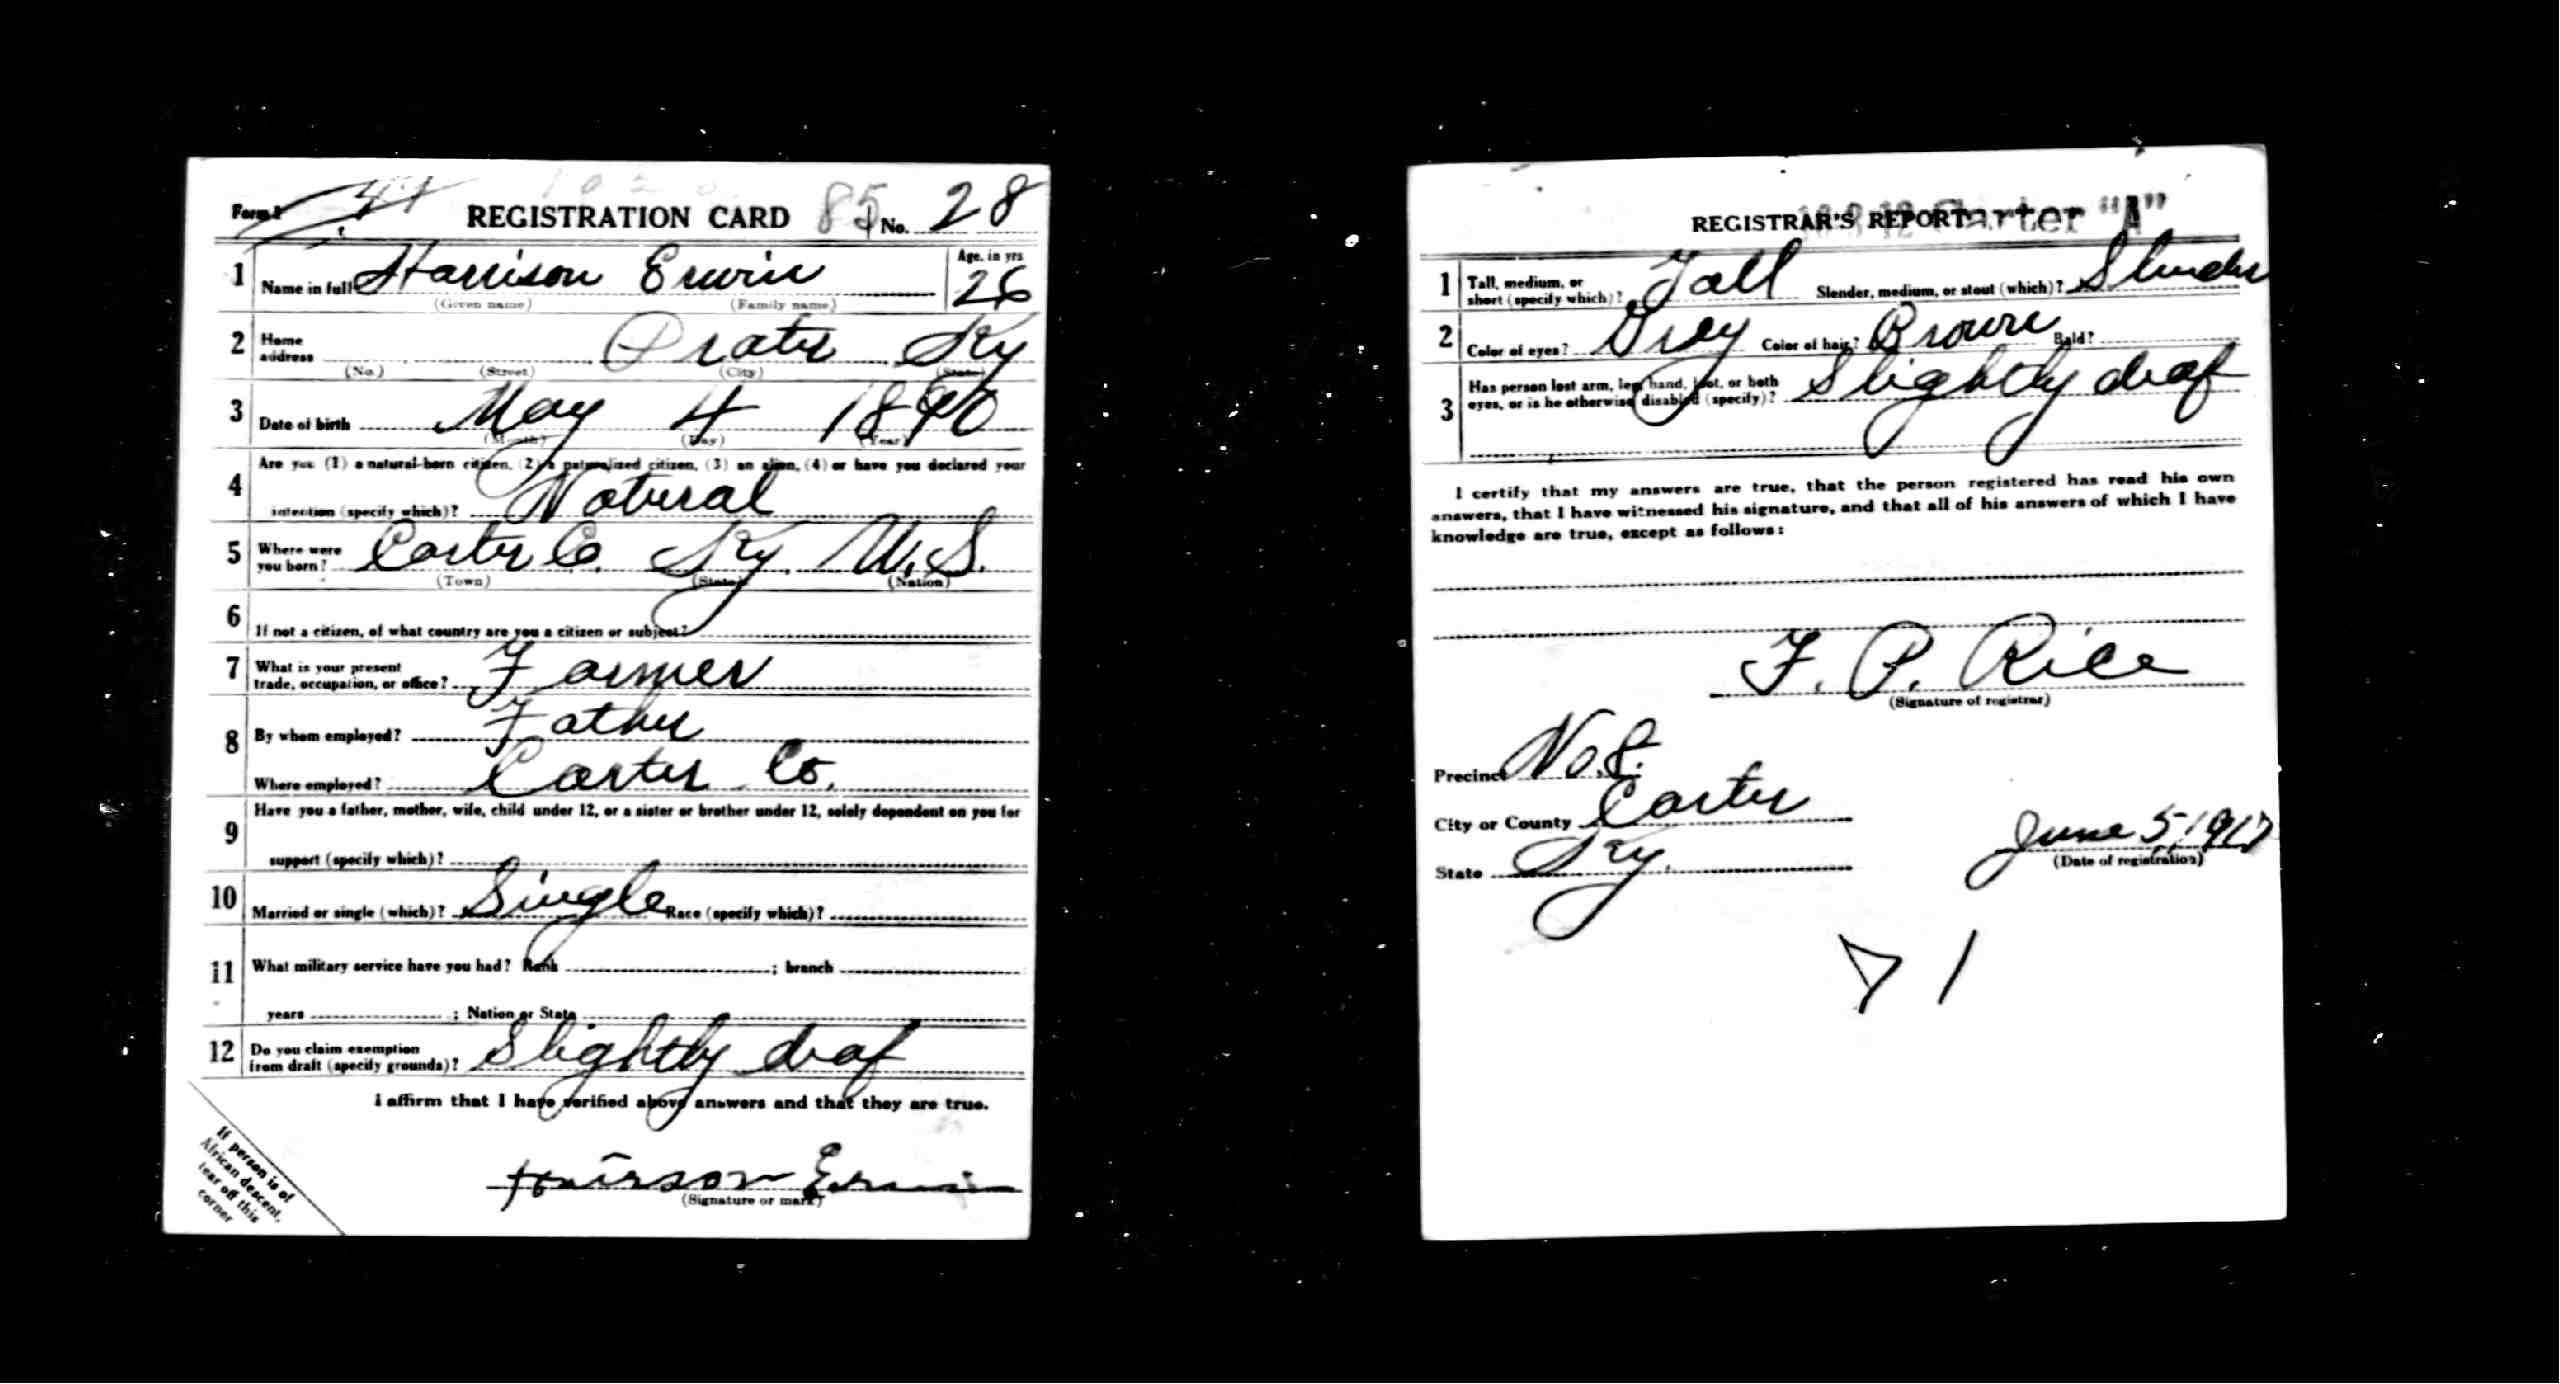 Form 1 REGISTRATION CARD 85 No. 28
1 Name in full Harrison Erwin Age, in yrs 26
(Given name) (Family name)
2 Home address Prater Ky
(No.) (Street) (City) (State)
3 Date of birth May 4 1890
(Month) (Day) (Year)
4 Are you (1) a natural-born citizen, (2) a naturalized citizen, (3) an alien, (4) or have you declared your
intention (specify which)? Natural
5 Where were you born? Carter Co. Ky. U.S.
(Town) (State) (Nation)
6 If not a citizen, of what country are you a citizen or subject?
7 What is your present trade, occupation, or office? Farmer
8 By whom employed? Father
Where employed? Carter Co.
9 Have you a father, mother, wife, child under 12, or a sister or brother under 12, solely dependent on you for
support (specify which)?
10 Married or single (which)? Single Race (specify which)?
11 What military service have you had? Rank ; branch
years ; Nation or State
12 Do you claim exemption from draft (specify grounds)? Slightly deaf
I affirm that I have verified above answers and that they are true.
Harrison Erwin
(Signature or mark)
If person is of
African descent,
tear off this
corner
REGISTRAR'S REPORT Carter "A"
1 Tall, medium, or short (specify which)? Tall Slender, medium, or stout (which)? Slender
2 Color of eyes? Grey Color of hair? Brown Bald?
3 Has person lost arm, leg, hand, foot, or both
eyes, or is he otherwise disabled (specify)? Slightly deaf
I certify that my answers are true, that the person registered has read his own
answers, that I have witnessed his signature, and that all of his answers of which I have
knowledge are true, except as follows:
F. P. Rice
(Signature of registrar)
Precinct No. 8.
City or County Carter
State Ky.
June 5 1917
(Date of registration)